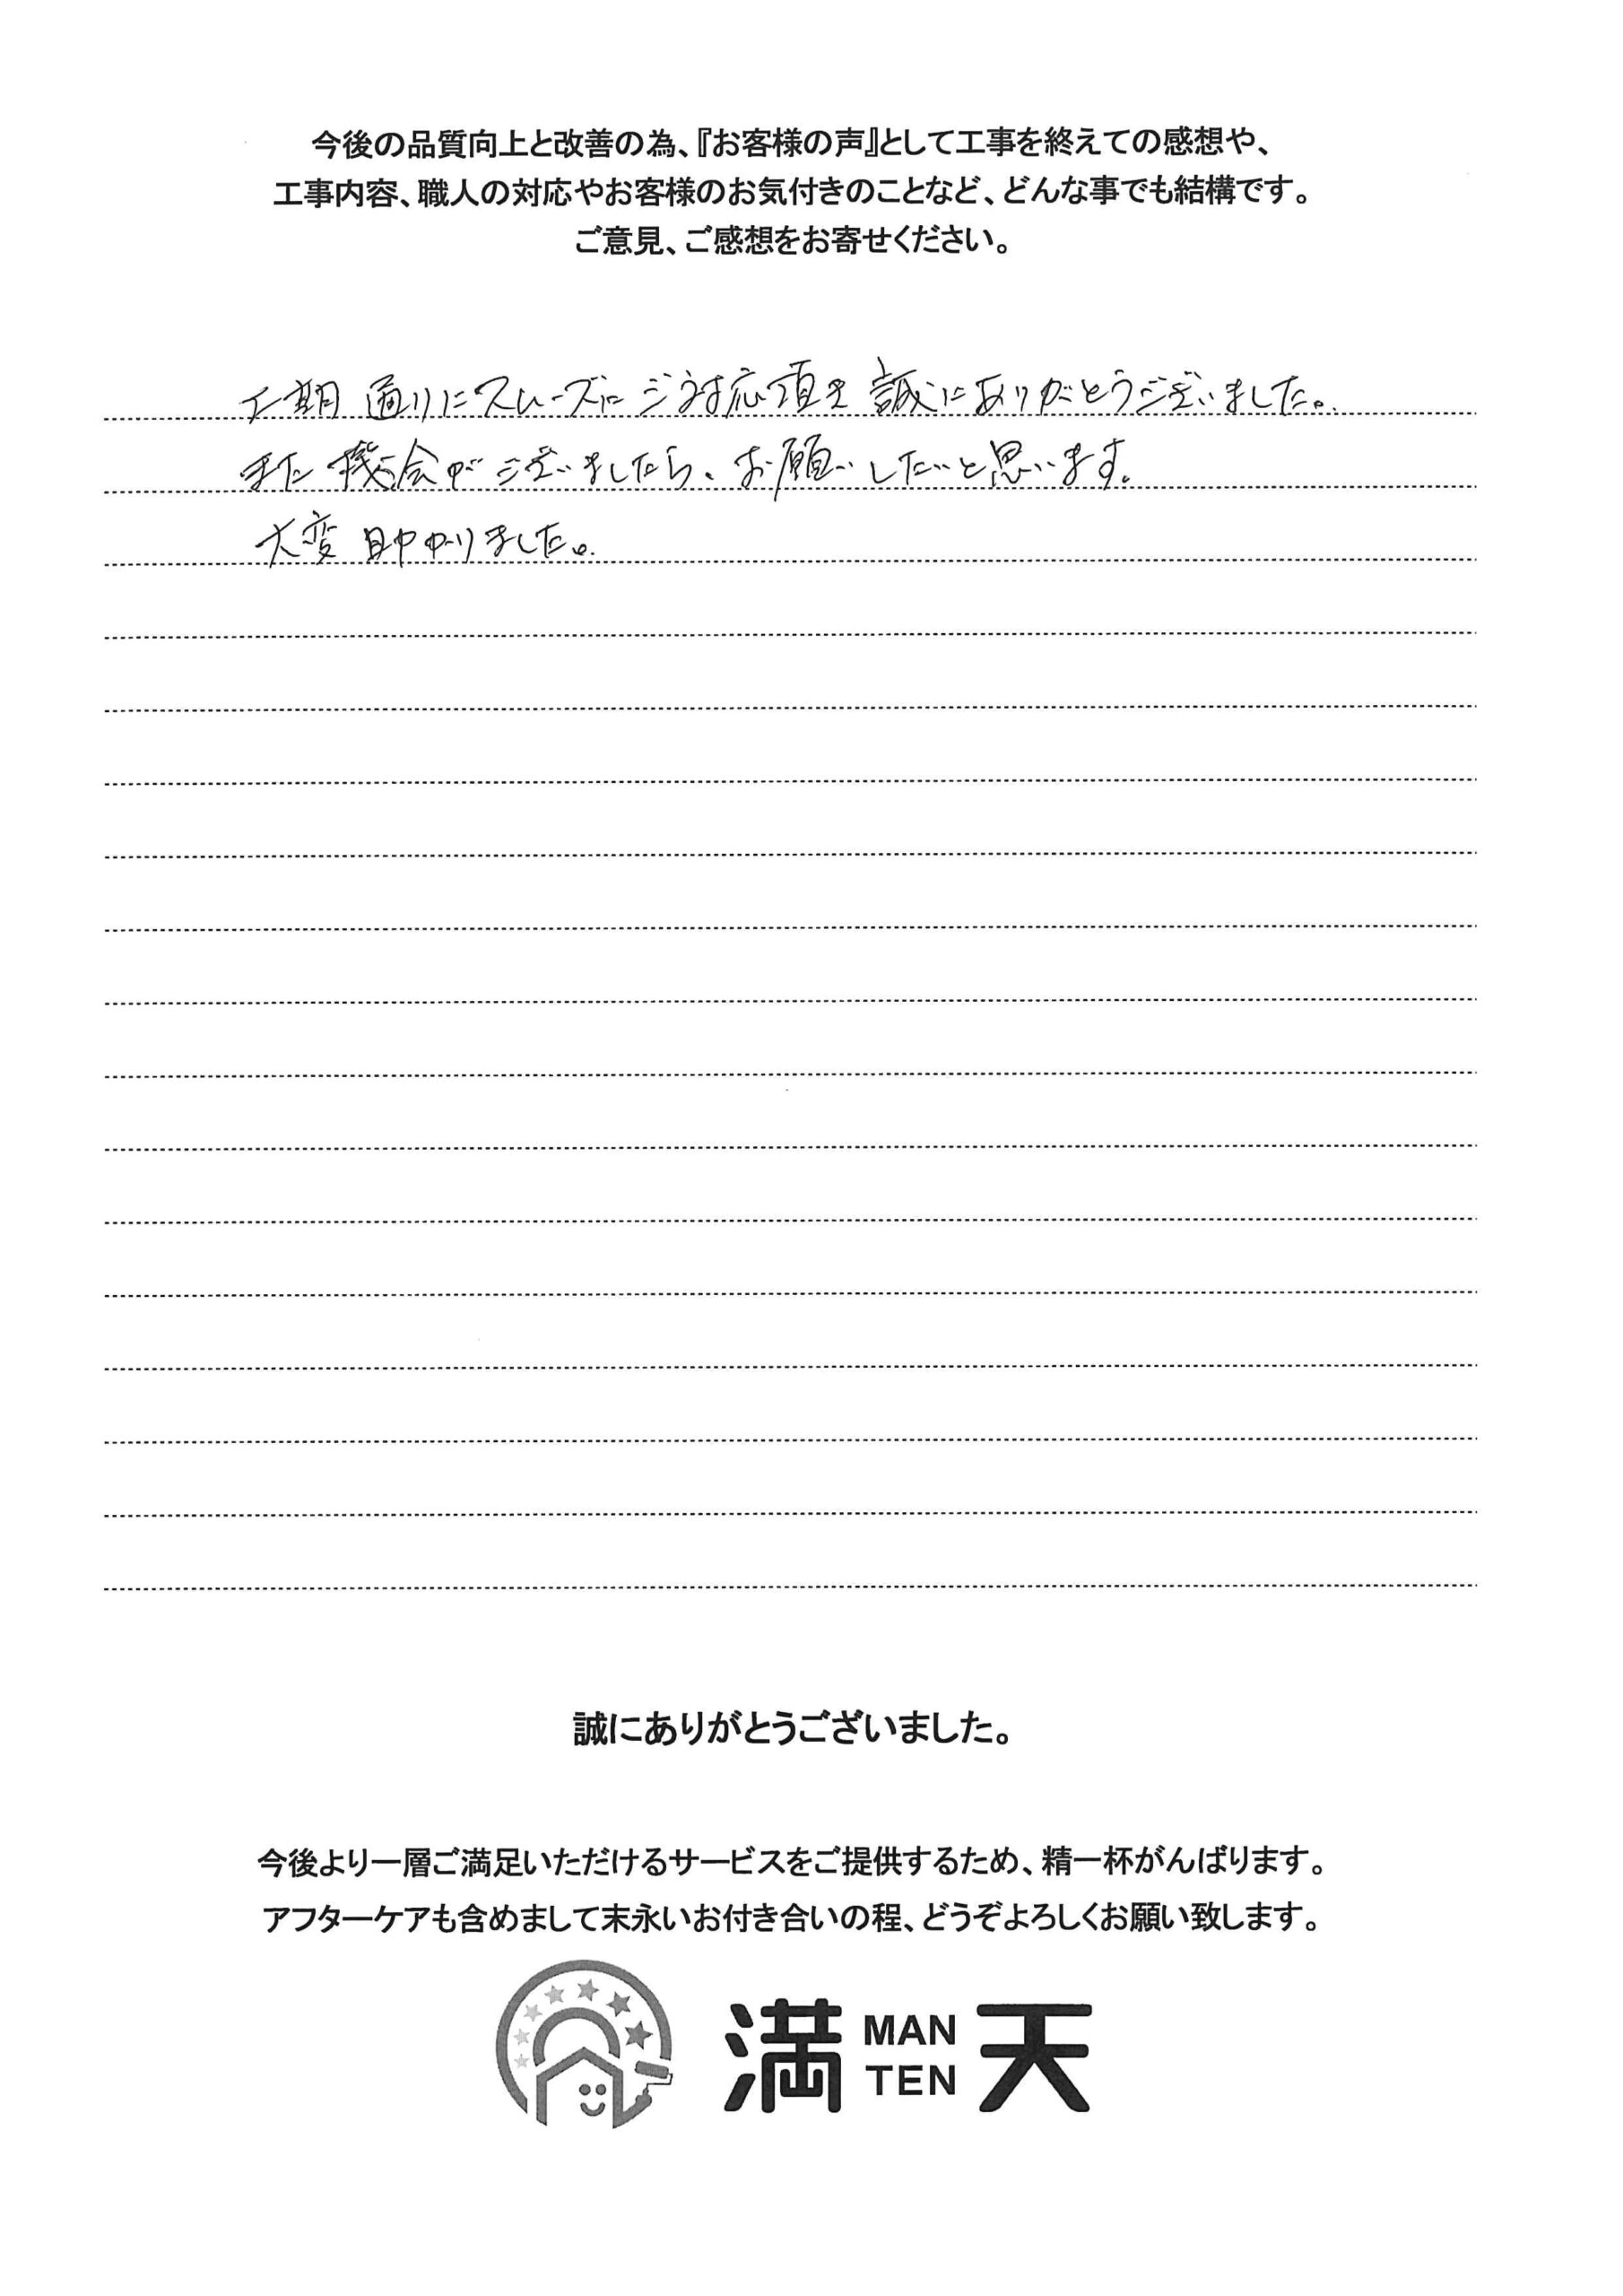 今後の品質向上と改善の為、『お客様の声』として工事を終えての感想や、
工事内容、職人の対応やお客様のお気付きのことなど、どんな事でも結構です。
ご意見、ご感想をお寄せください。
工期通りにスムーズにご対応頂き誠にありがとうございました。
また機会がございましたら、お願いしたいと思います。
大変助かりました。
誠にありがとうございました。
今後より一層ご満足いただけるサービスをご提供するため、精一杯がんばります。
アフターケアも含めまして末永いお付き合いの程、どうぞよろしくお願い致します。
満 MAN TEN 天